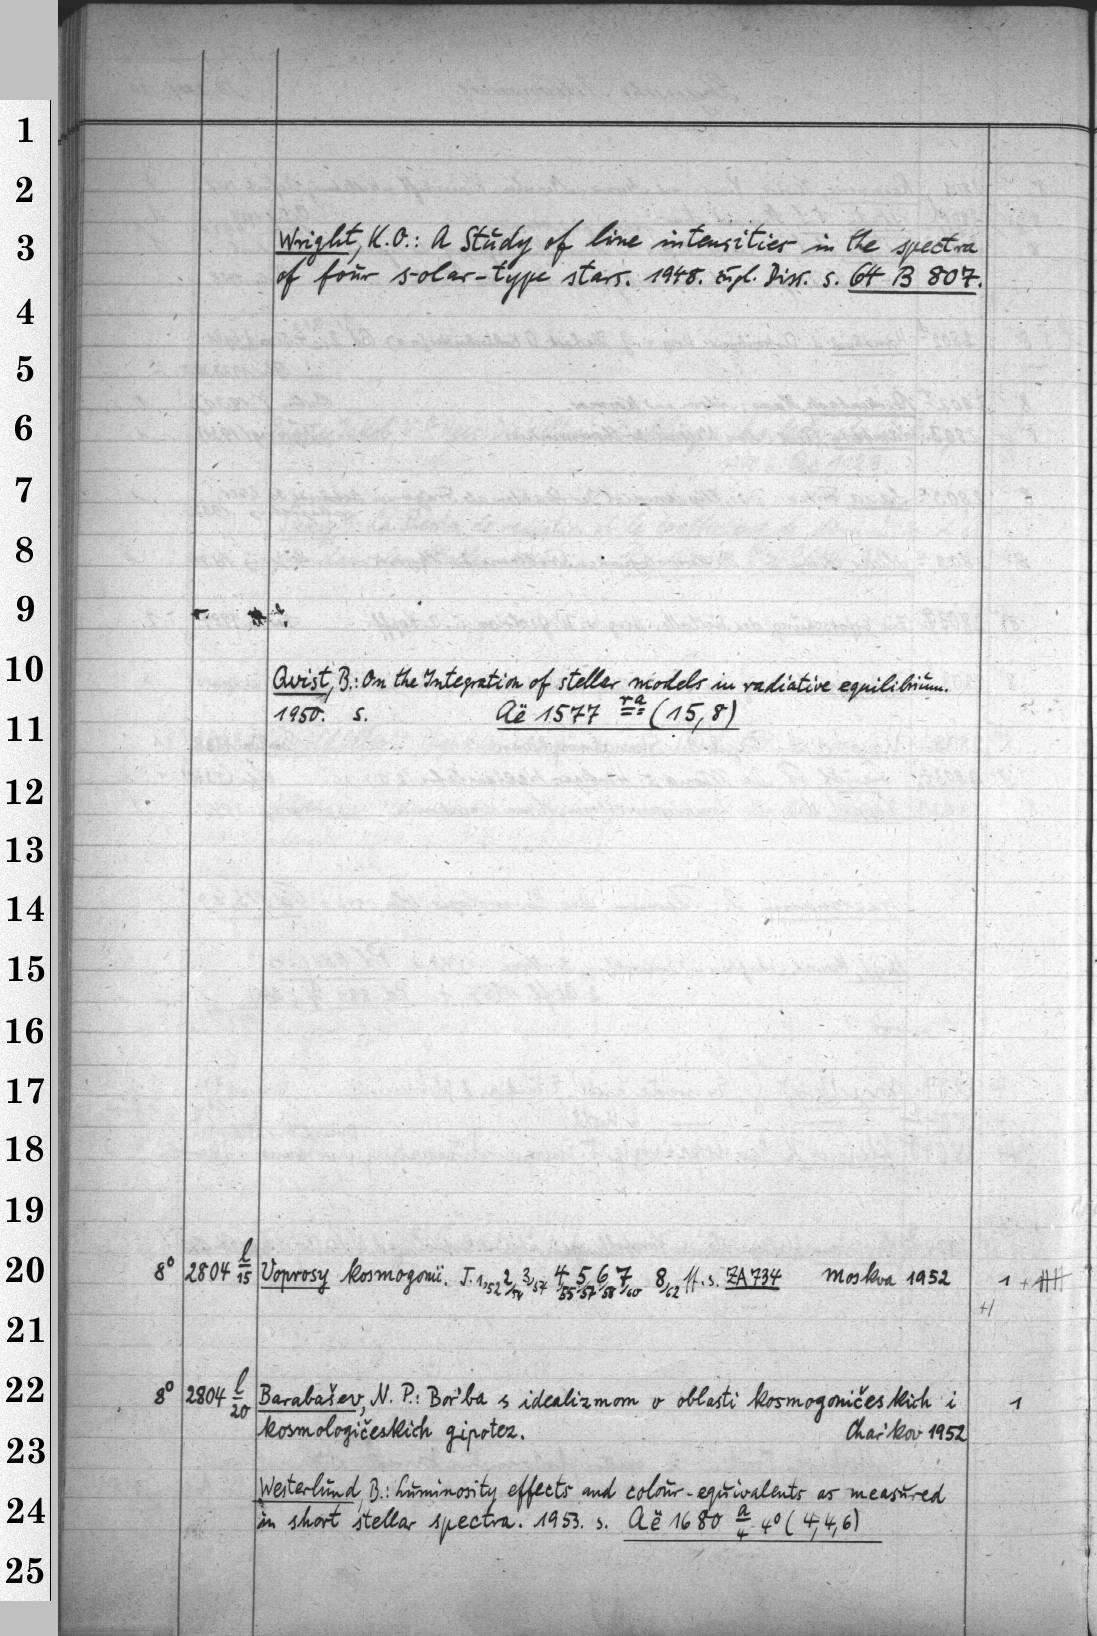 1
2
3
4
5
6
7
8
9
10
11
12
13
14
15
16
17
18
19
20
21
22
23
24
25
Wright, K.O.: A Study of line intensities in the spectra
of four solar-type stars. 1948. zugl. Diss. s. 64 B 807.
Qvist, B.: On the Integration of stellar models in radiative equilibrium.
1950. s. Aë 1577 ra (15,8)
8° 2804 l/15 Voprosy kosmogonii. T. 1,52 2/54 3/54 4/55 5/57 6/58 7/60 8/62 ff. s. ZA 734 Moskva 1952 1 + HH
+1
8° 2804 l/20 Barabašev, N. P.: Bor'ba s idealizmom v oblasti kosmogoničeskich i 1
kosmologičeskich gipotez. Char'kov 1952
Westerlund, B.: Luminosity effects and colour-equivalents as measured
in short stellar spectra. 1953. s. Aë 1680 a/4 4° (4,4,6)